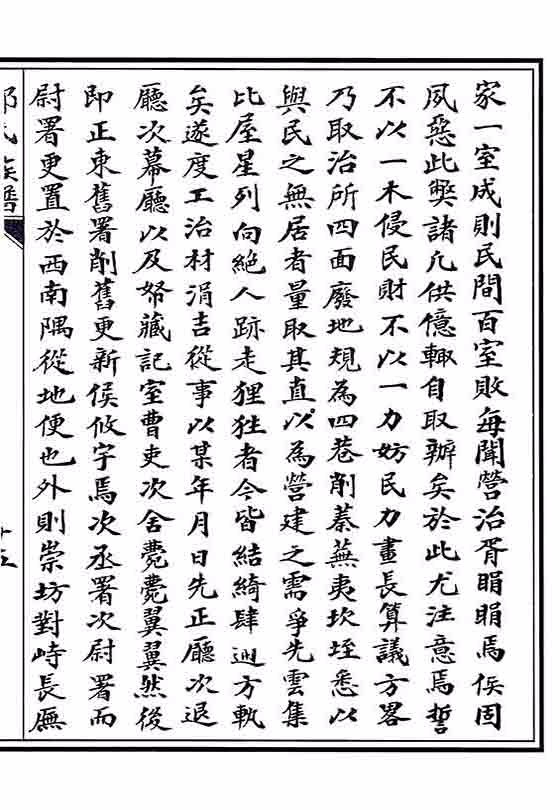 家一室成則民間百室敗每聞營治胥睊睊焉侯固
夙惡此弊諸凡供億輙自取辦矣於此尤注意焉誓
不以一木侵民財不以一力妨民力畫長算議方畧
乃取治所四面廢地規為四巷削蓁蕪夷坎垤悉以
與民之無居者量取其直以為營建之需爭先雲集
比屋星列向絶人跡走狸狌者今皆結綺肆迾方軌
矣遂度工治材涓吉從事以某年月日先正廳次退
廳次幕廳以及帑藏記室曹吏次舍甍甍翼翼然後
即正東舊署削舊更新侯攸宇焉次丞署次尉署而
尉署更置於西南隅從地便也外則崇坊對峙長廡
氏族譜
十五